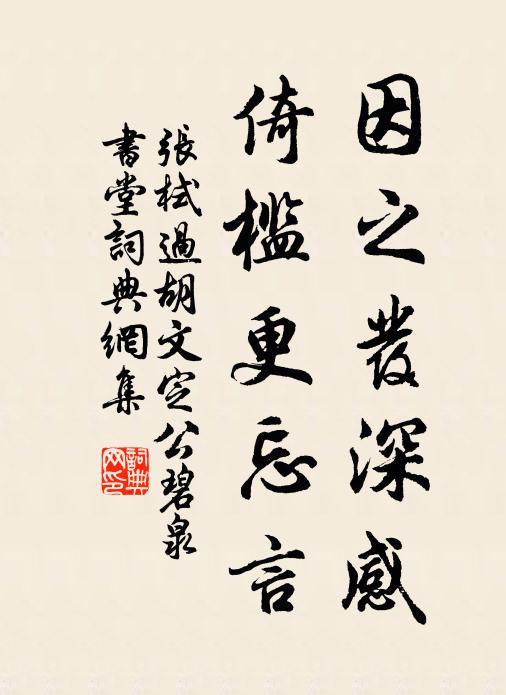 因之發深感
倚檻更忘言
張栻過胡文定公碧泉
書堂詞典網集
詞典網印